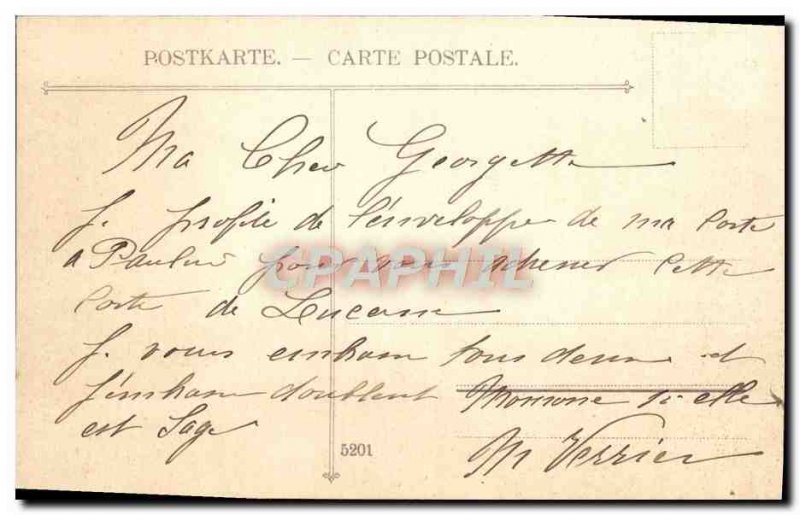 POSTKARTE. — CARTE POSTALE.
Ma Cher Georgette
Je profite de l'enveloppe de ma Carte
a Pauline pour vous adresser Cette
Carte de Lucerne
Je vous embrasse tous deux et
j'embrasse doublement Monone si elle
est Sage
M Verrier
5201
CPAPHIL